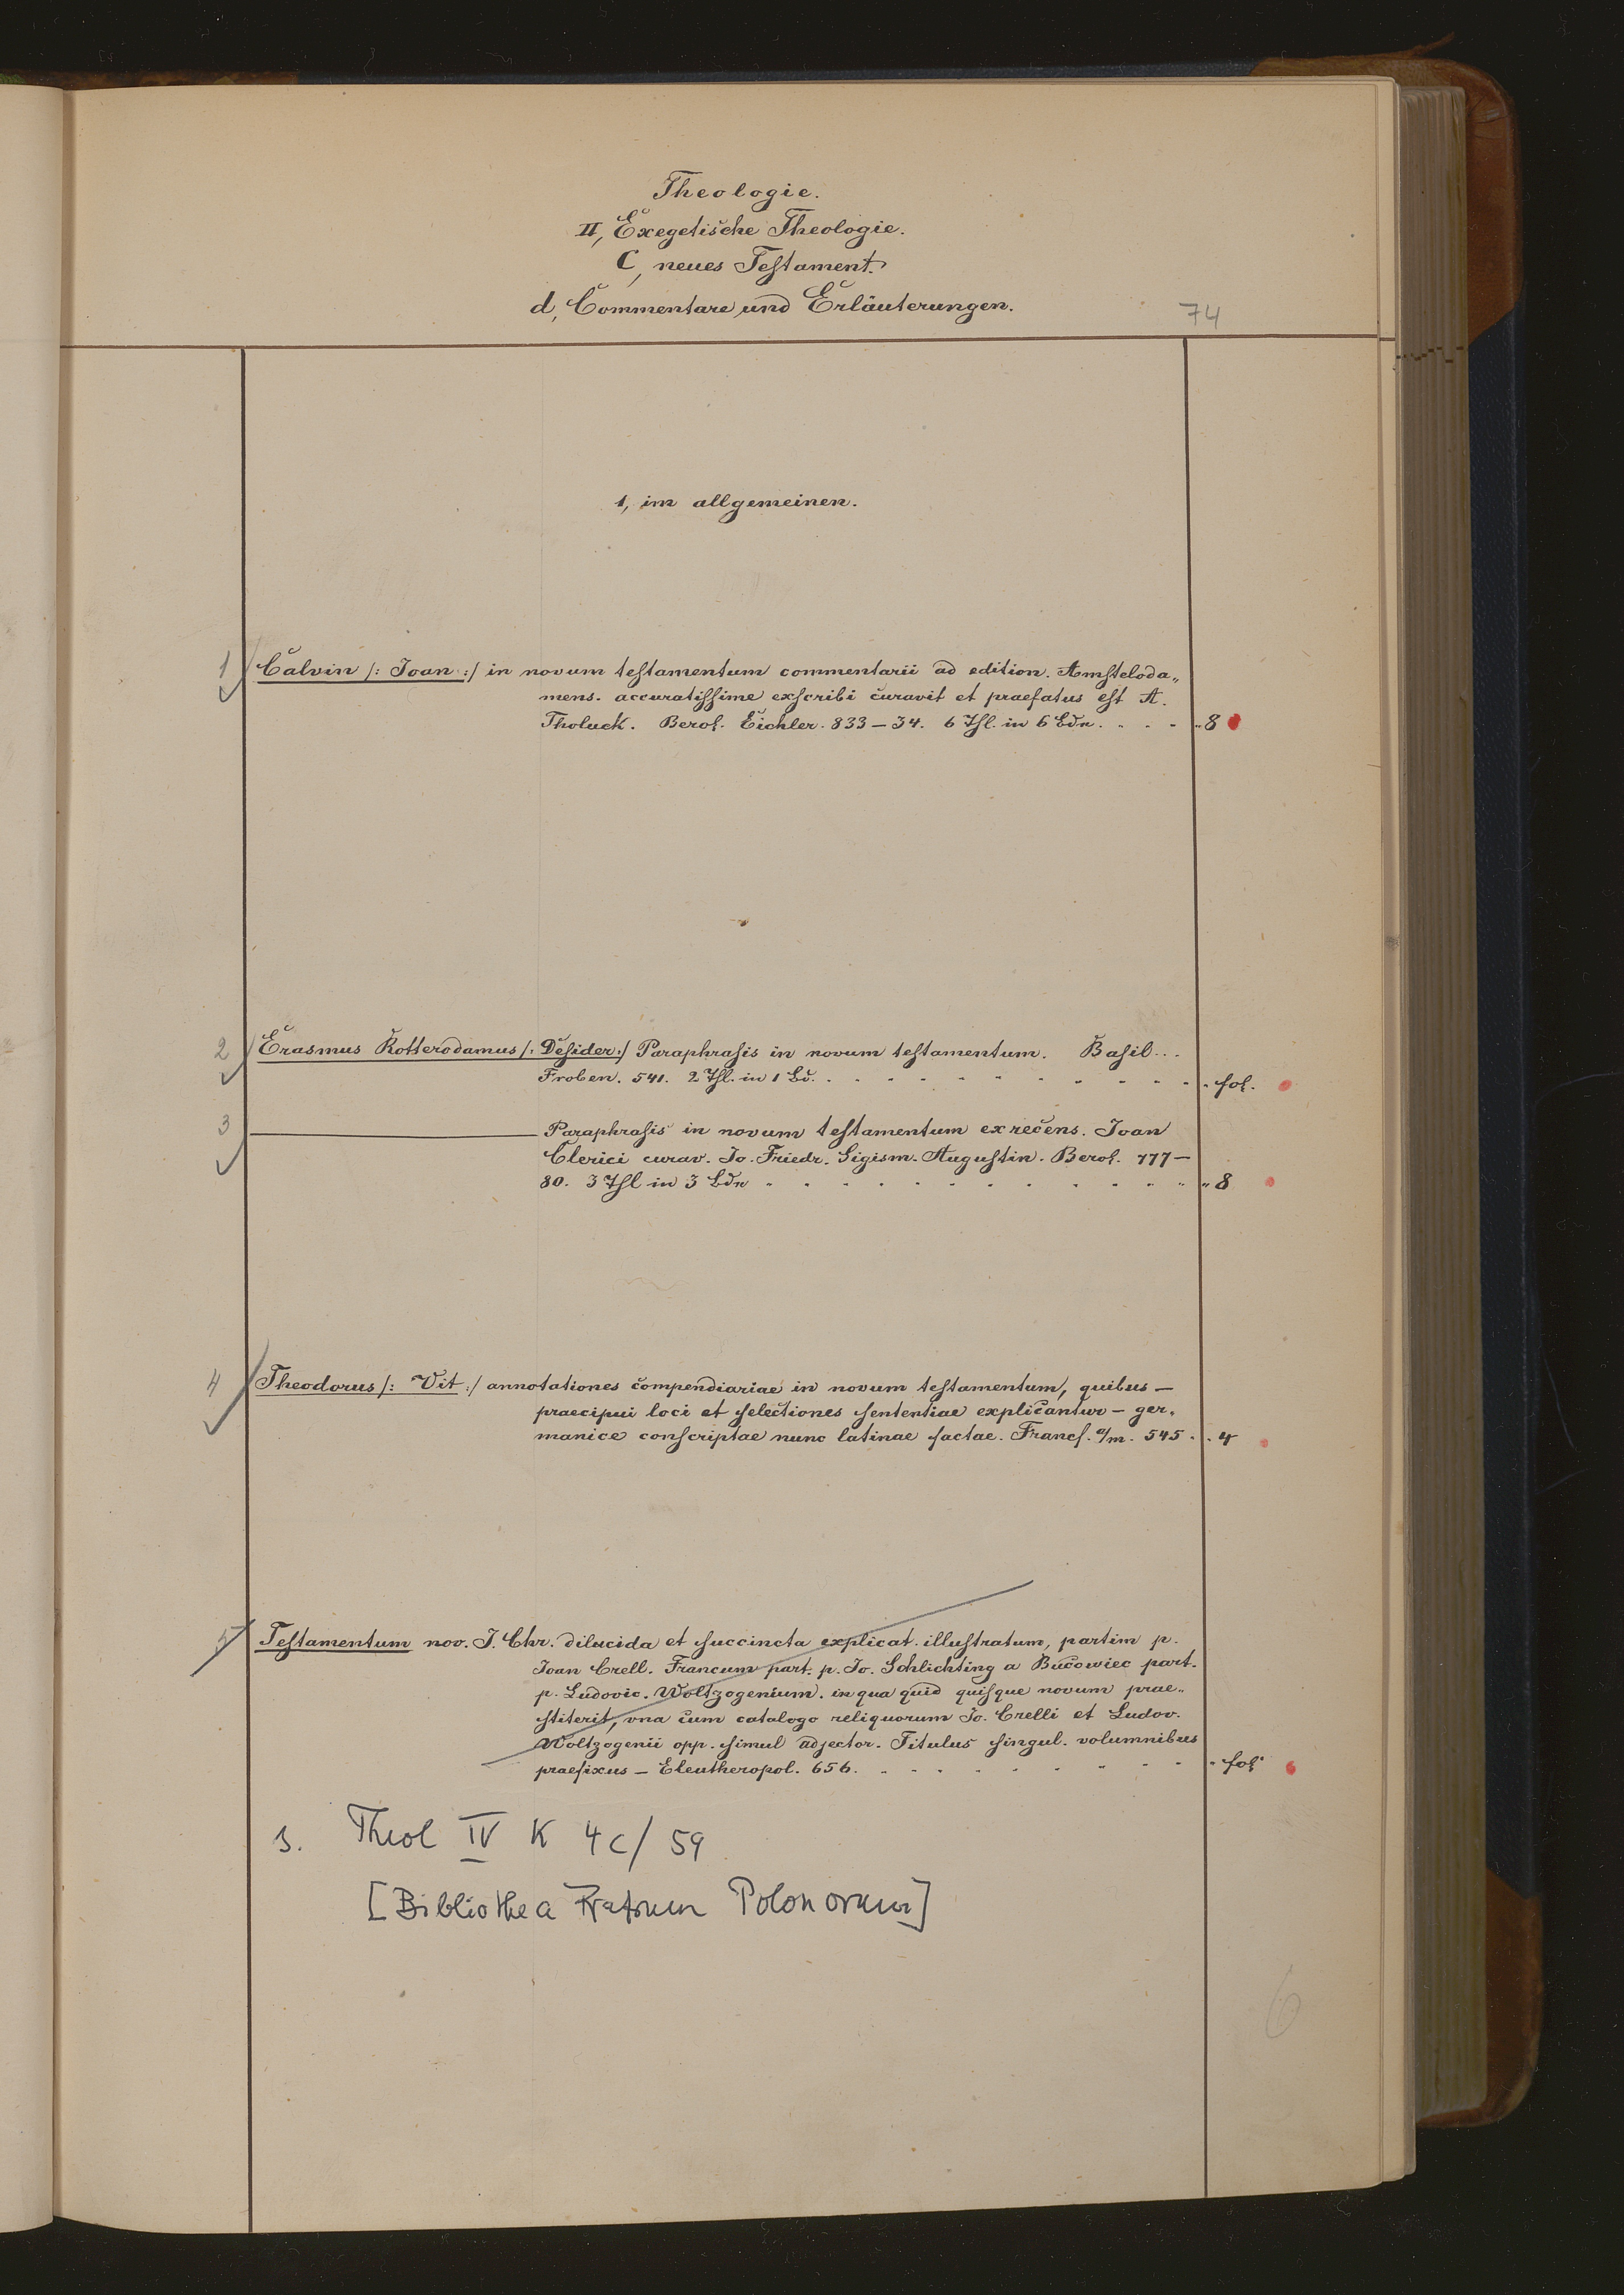 Theologie.
II, Exegetische Theologie.
C, neues Testament.
d, Commentare und Erläuterungen.
74
1, im allgemeinen.
1 Calvin /: Ioan :/ in novum testamentum commentarii ad edition. Amsteloda„
mens. accuratissime exscribi curavit et praefatus est A.
Tholuck. Berol. Eichler. 833–34. 6 Thl. in 6 Bdn. . . . . 8
2 Erasmus Rotterodamus /: Desider :/ Paraphrasis in novum testamentum. Basil...
Froben. 541. 2 Thl. in 1 Bd. . . . . . . . . . . . fol.
3 ———— Paraphrasis in novum testamentum ex recens. Ioan
Clerici curav. Io. Friedr. Sigism. Augustin. Berol. 777–
80. 3 Thl in 3 Bdn . . . . . . . . . . . . 8
4 Theodorus /: Vit :/ annotationes compendiariae in novum testamentum, quibus –
praecipui loci et selectiones sententiae explicantur – ger„
manice conscriptae nunc latinae factae. Francf. a/m. 545 . . 4
5 Testamentum nov. J. Chr. dilucida et succincta explicat. illustratum, partim p.
Ioan Crell. Francum part. p. Io. Schlichting a Bucowiec part.
p. Ludovic. Woltzogenium. in qua quid quisque novum prae„
stiterit, vna cum catalogo reliquorum Io. Crelli et Ludov.
Woltzogenii opp. simul adjector. Titulus singul. volumnibus
praefixus – Eleutheropol. 656. . . . . . . . . . fol.
s. Theol IV K 4c/ 59
[Bibliothea Fratrum Polonorum]
6